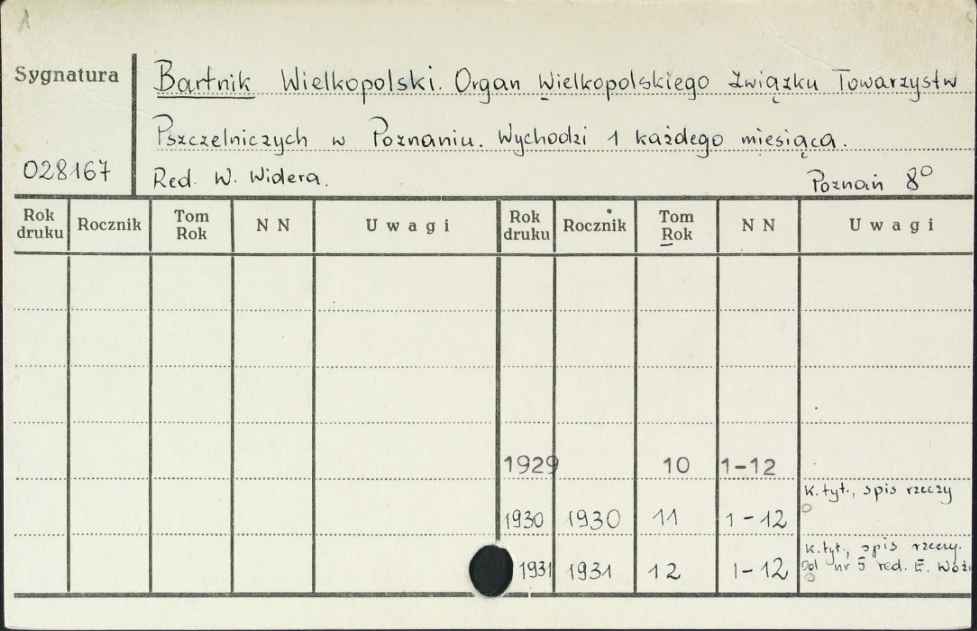 Sygnatura
Bartnik Wielkopolski. Organ Wielkopolskiego Związku Towarzystw
Pszczelniczych w Poznaniu. Wychodzi 1 każdego miesiąca.
028167
Red. W. Widera.
Poznań 8°
Rok druku Rocznik Tom Rok NN Uwagi Rok druku Rocznik Tom Rok NN Uwagi
1929 10 1-12
k. tyt., spis rzeczy
1930 1930 11 1-12
k. tyt., spis rzeczy.
Od nr 5 red. E.
1931 1931 12 1-12